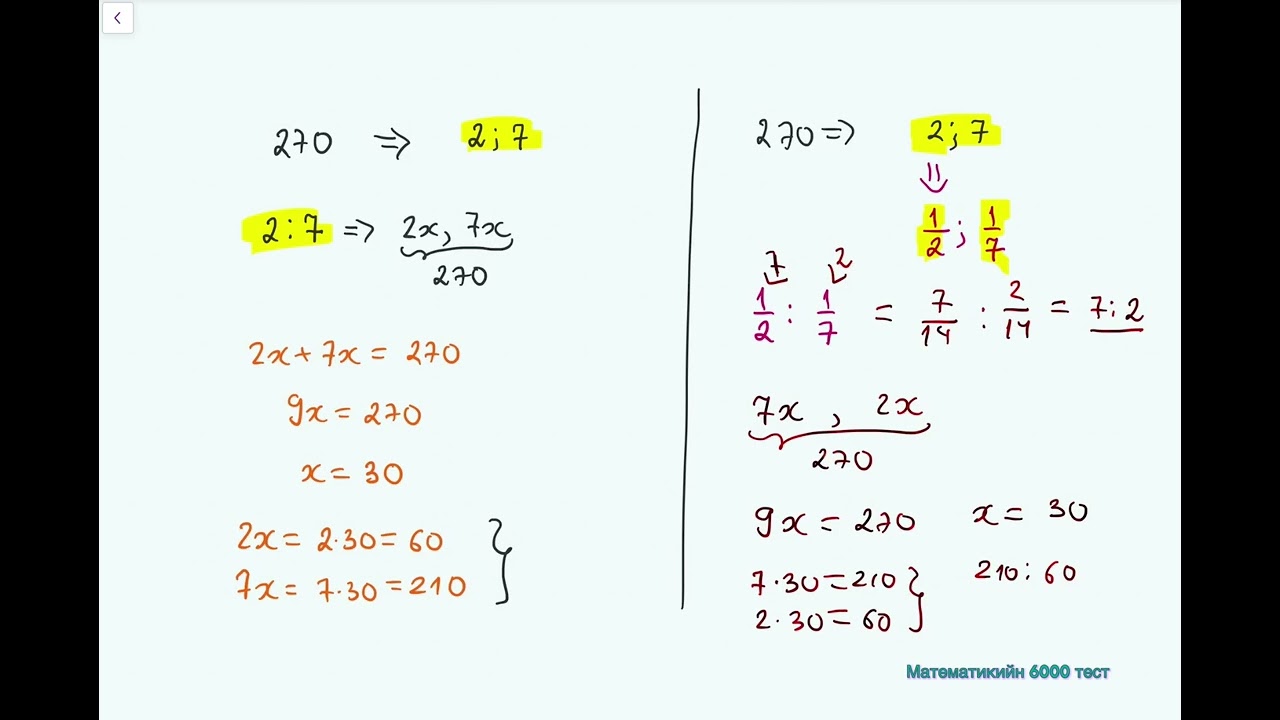 270 ⇒ 2; 7
2:7 ⇒ 2x, 7x
270
2x + 7x = 270
9x = 270
x = 30
2x = 2·30 = 60
7x = 7·30 = 210
270 ⇒ 2; 7
⇓
1/2 ; 1/7
7 2
1/2 : 1/7 = 7/14 : 2/14 = 7:2
7x , 2x
270
9x = 270 x = 30
7·30 = 210
2·30 = 60
210 : 60
Математикийн 6000 тест